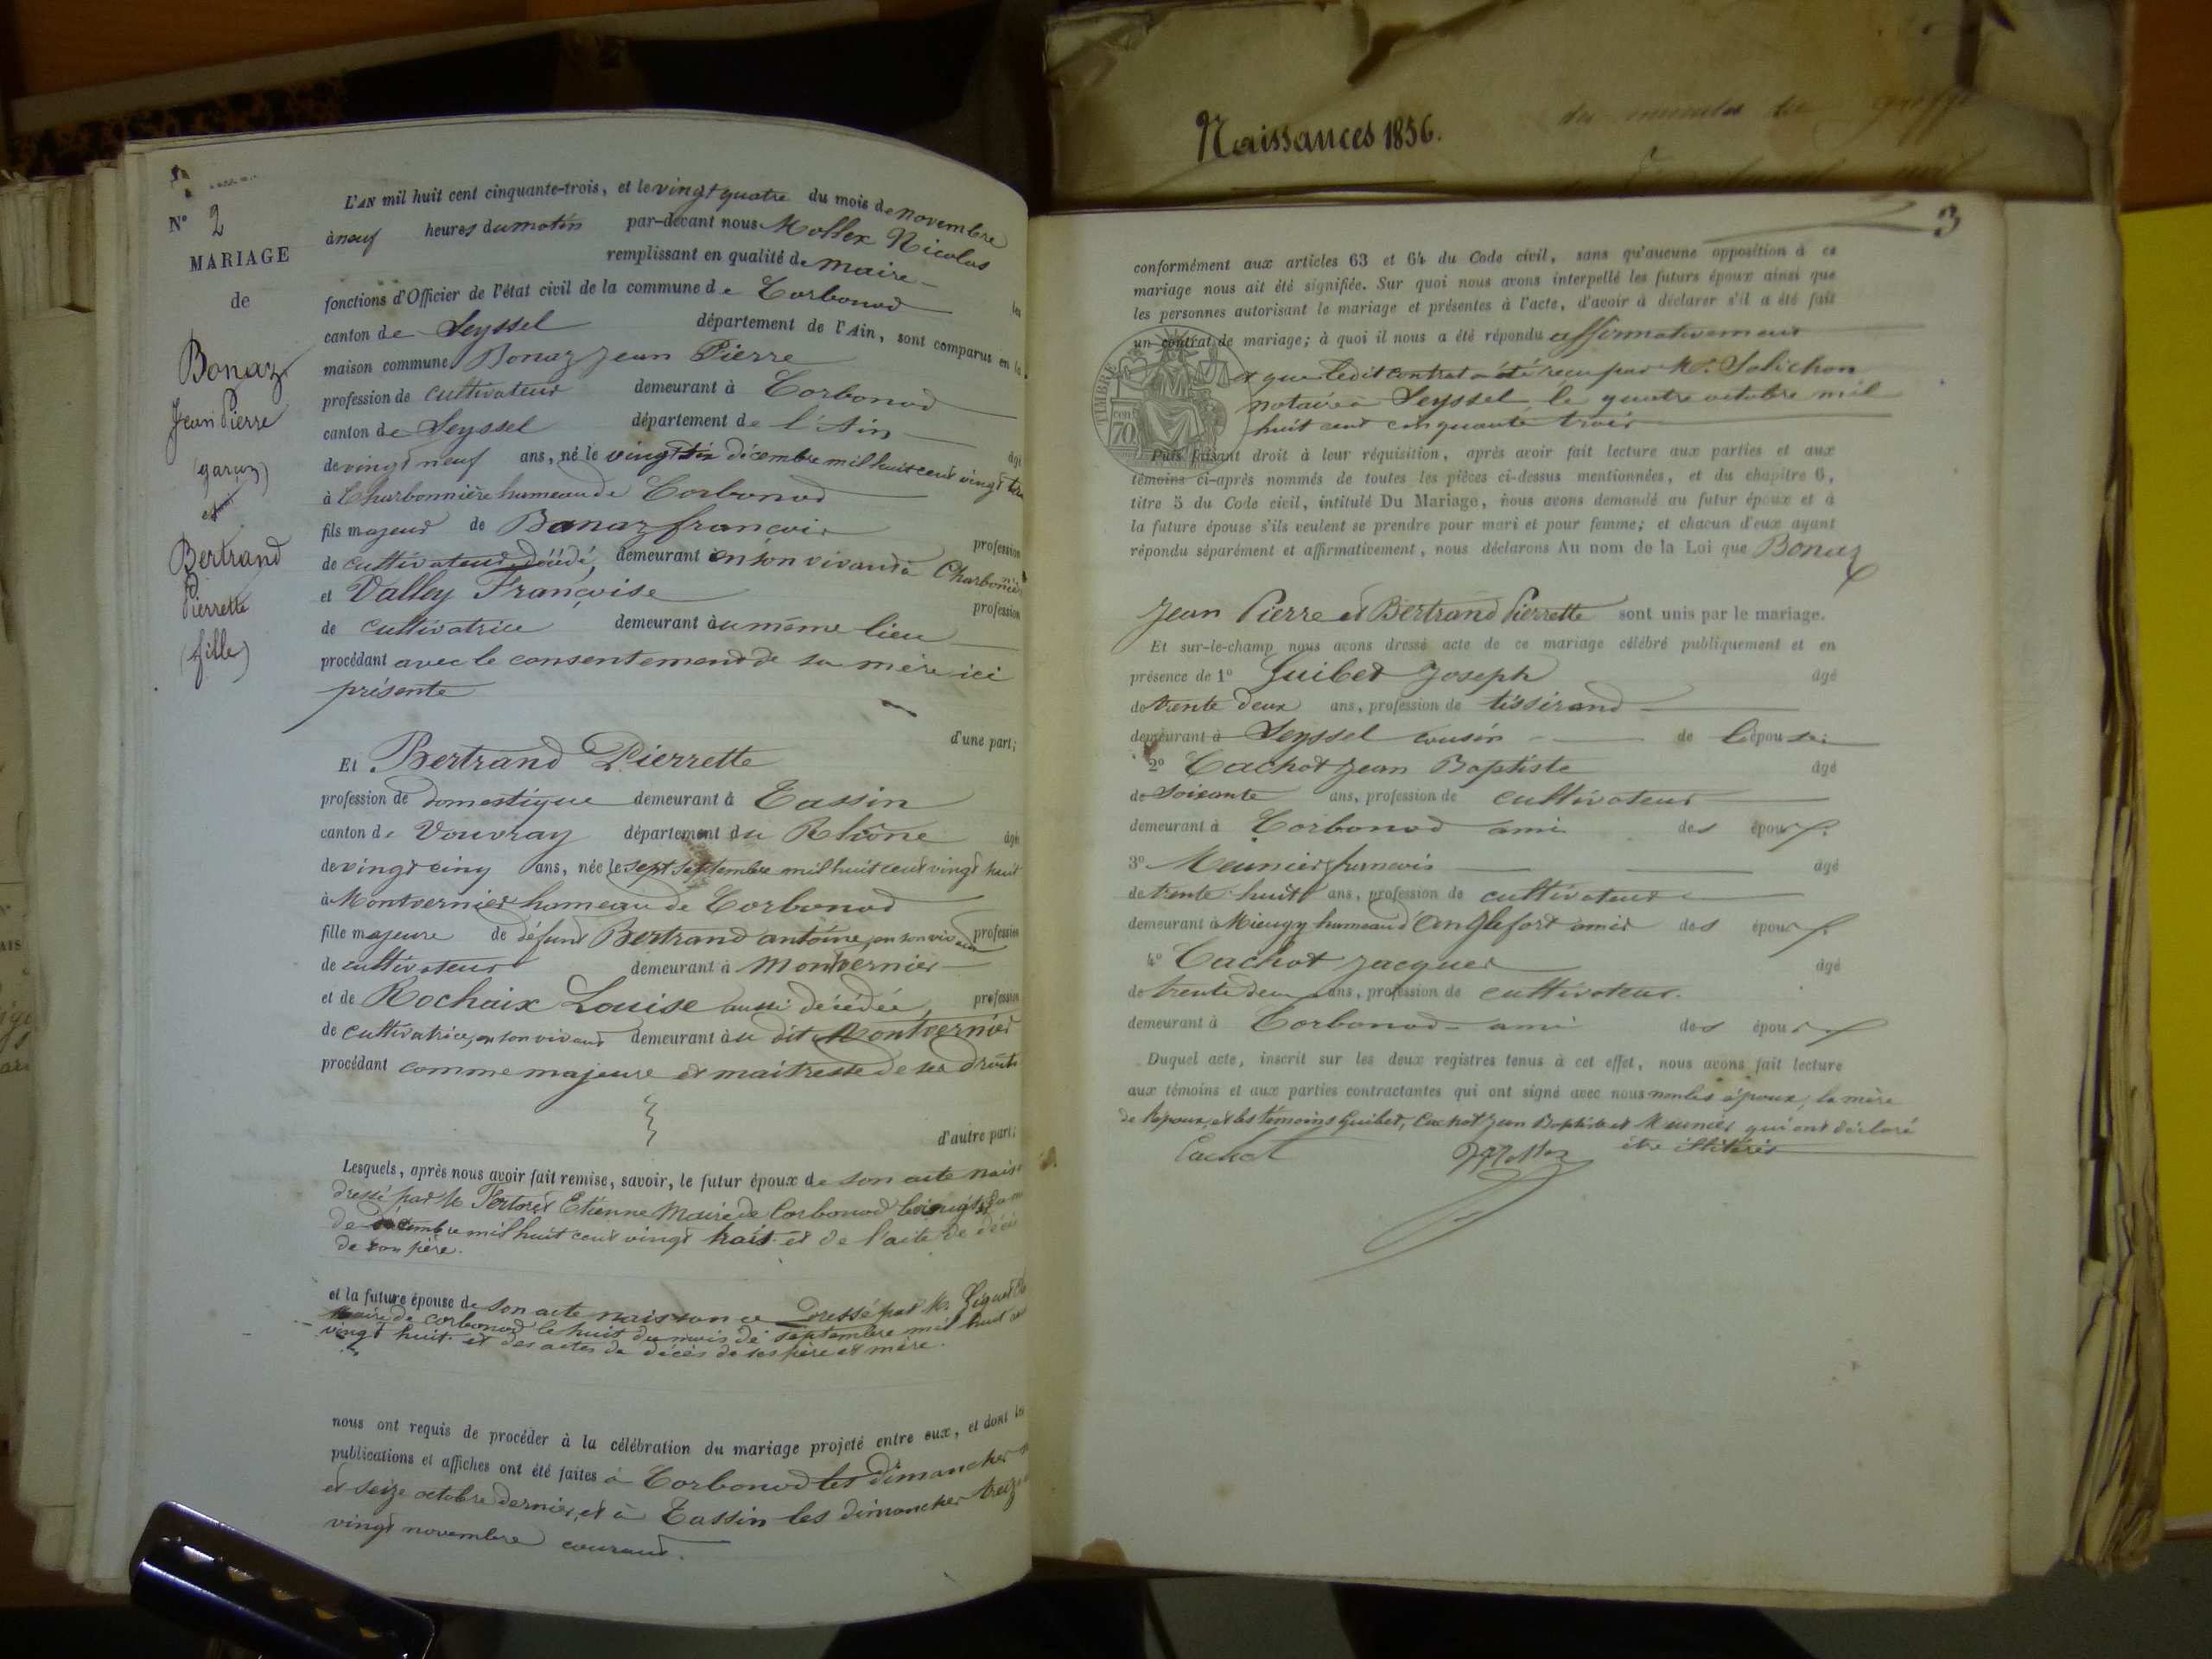 N° 2
MARIAGE
de
Bonaz
Jean Pierre
(garçon)
et
Bertrand
Pierrette
(fille)
L'AN mil huit cent cinquante-trois, et le vingt quatre du mois de novembre
à neuf heures du matin par-devant nous Mollex Nicolas
remplissant en qualité de maire les
fonctions d'Officier de l'état civil de la commune de Corbonod
canton de Seyssel département de l'Ain, sont comparus en la
maison commune Bonaz Jean Pierre
profession de cultivateur demeurant à Corbonod
canton de Seyssel département de l'Ain âgé
de vingt neuf ans, né le vingt six décembre mil huit cent vingt
à Charbonnière hameau de Corbonod
fils majeur de Bonaz françois profession
de cultivateur, décédé, demeurant en son vivant à Charbonière
et Valley Françoise profession
de cultivatrice demeurant au même lieu
procédant avec le consentement de sa mère ici
présente
d'une part;
Et Bertrand Pierrette
profession de domestique demeurant à Tassin
canton de Vouvray département du Rhône âgée
de vingt cinq ans, née le sept septembre mil huit cent vingt huit
à Montvernier hameau de Corbonod
fille majeure de défunt Bertrand antoine, en son vivant profession
de cultivateur demeurant à Montvernier
et de Rochaix Louise aussi décédée, profession
de cultivatrice, en son vivant demeurant au dit Montvernier
procédant comme majeure et maitresse de ses droits
d'autre part;
Lesquels, après nous avoir fait remise, savoir, le futur époux de son acte nais
dressé par Mr Etienne Maire de Corbonod le vingt
de décembre mil huit cent vingt trois et de l'acte de décès
de son père.
et la future épouse de son acte naissance dressé par Mr.
Maire de Corbonod le huit du mois de septembre mil huit cent
vingt huit et des actes de décès de ses père et mère.
nous ont requis de procéder à la célébration du mariage projeté entre eux, et dont les
publications et affiches ont été faites à Corbonod les dimanches
et seize octobre dernier, et à Tassin les dimanches treize
vingt novembre courant.
Naissances 1856.
3
conformément aux articles 63 et 64 du Code civil, sans qu'aucune opposition à ce
mariage nous ait été signifiée. Sur quoi nous avons interpellé les futurs époux ainsi que
les personnes autorisant le mariage et présentes à l'acte, d'avoir à déclarer s'il a été fait
un contrat de mariage; à quoi il nous a été répondu affirmativement
et que ledit contrat a été reçu par Mr. Solichon
notaire à Seyssel le quatre octobre mil
huit cent cinquante trois
TIMBRE
70 cen
Puis faisant droit à leur réquisition, après avoir fait lecture aux parties et aux
témoins ci-après nommés de toutes les pièces ci-dessus mentionnées, et du chapitre 6,
titre 5 du Code civil, intitulé Du Mariage, nous avons demandé au futur époux et à
la future épouse s'ils veulent se prendre pour mari et pour femme; et chacun d'eux ayant
répondu séparément et affirmativement, nous déclarons Au nom de la Loi que Bonaz
Jean Pierre et Bertrand Pierrette sont unis par le mariage.
Et sur-le-champ nous avons dressé acte de ce mariage célébré publiquement et en
présence de 1° Guibet Joseph âgé
de trente deux ans, profession de tisserand
demeurant à Seyssel cousin de l'épouse
2° Cachot Jean Baptiste âgé
de soixante ans, profession de cultivateur
demeurant à Corbonod ami des époux
3° Meunier françois âgé
de trente huit ans, profession de cultivateur
demeurant à Mieugy hameau d'Anglefort amis des époux
4° Cachot Jacques âgé
de trente deux ans, profession de cultivateur
demeurant à Corbonod ami des époux
Duquel acte, inscrit sur les deux registres tenus à cet effet, nous avons fait lecture
aux témoins et aux parties contractantes qui ont signé avec nous non les époux, la mère
de l'époux, et les témoins Guibet, Cachot Jean Baptiste et Meunier qui ont déclaré
être illitérés
Cachot